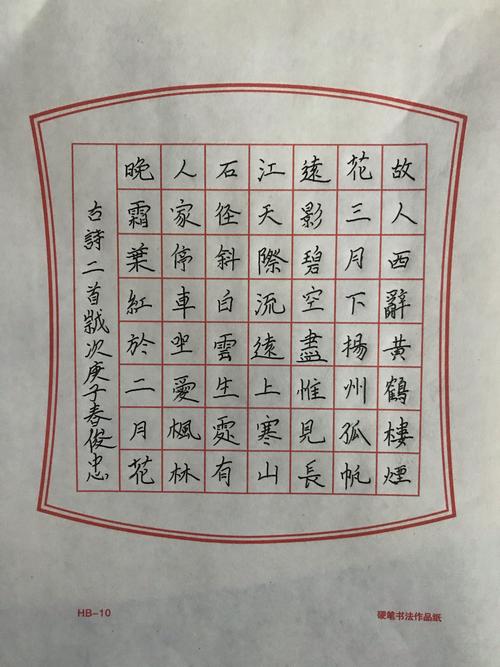 故人西辭黄鶴樓煙
花三月下楊州孤帆
遠影碧空盡惟見長
江天際流遠上寒山
石径斜白雲生處有
人家停車坐愛楓林
晚霜葉紅於二月花
古詩二首歲次庚子春俊忠
HB-10
硬笔书法作品纸